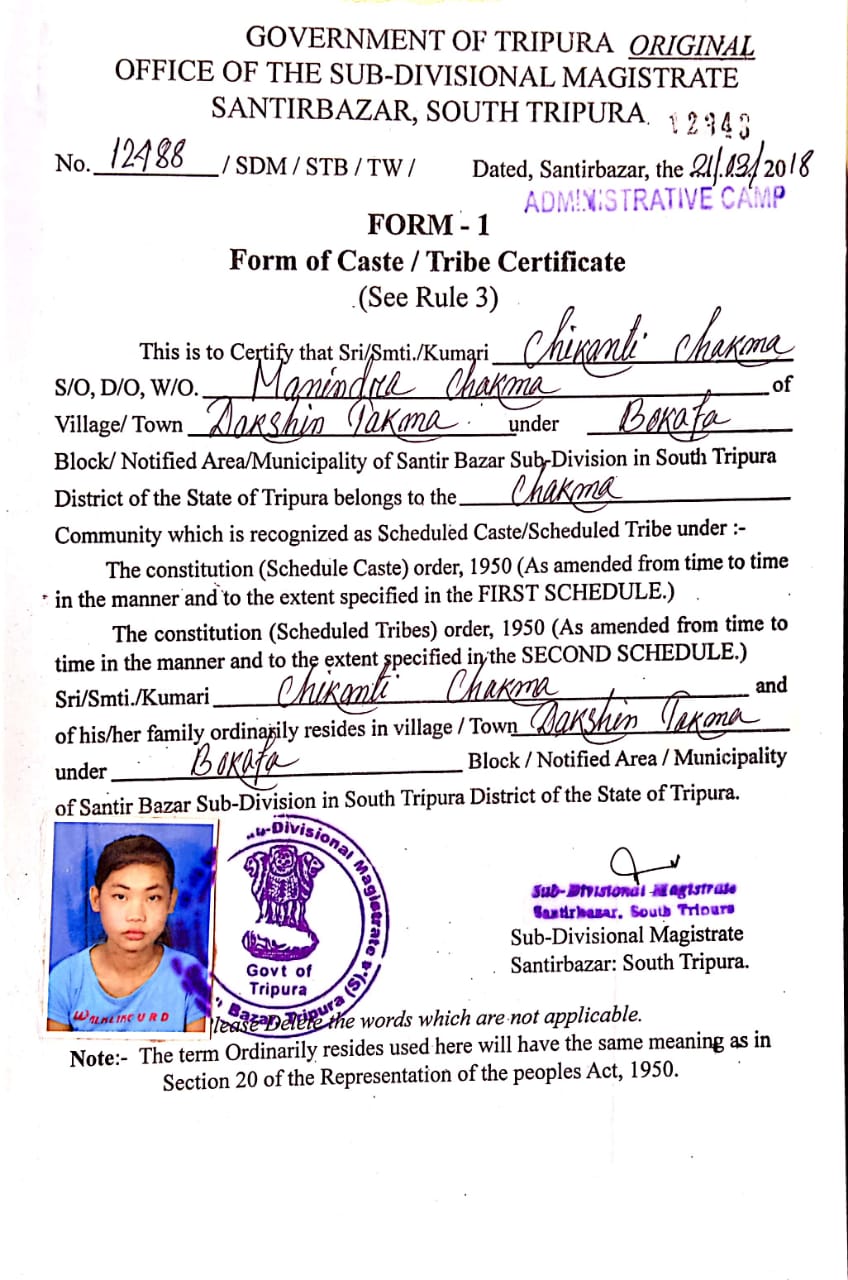 GOVERNMENT OF TRIPURA ORIGINAL
OFFICE OF THE SUB-DIVISIONAL MAGISTRATE
SANTIRBAZAR, SOUTH TRIPURA.
No. 12488 / SDM / STB / TW / Dated, Santirbazar, the 21/03/2018
ADMINISTRATIVE CAMP
FORM - 1
Form of Caste / Tribe Certificate
(See Rule 3)
This is to Certify that Sri/Smti./Kumari Chikanti Chakma
S/O, D/O, W/O. Manindra Chakma of
Village/ Town Dakshin Takma under Bokafa
Block/ Notified Area/Municipality of Santir Bazar Sub-Division in South Tripura
District of the State of Tripura belongs to the Chakma
Community which is recognized as Scheduled Caste/Scheduled Tribe under :-
The constitution (Schedule Caste) order, 1950 (As amended from time to time
in the manner and to the extent specified in the FIRST SCHEDULE.)
The constitution (Scheduled Tribes) order, 1950 (As amended from time to
time in the manner and to the extent specified in the SECOND SCHEDULE.)
Sri/Smti./Kumari Chikanti Chakma and
of his/her family ordinarily resides in village / Town Dakshin Takma
under Bokafa Block / Notified Area / Municipality
of Santir Bazar Sub-Division in South Tripura District of the State of Tripura.
Sub-Divisional Magistrate
Govt of
Tripura
Bazar, Tripura (S)
Sub-Divisional Magistrate
Santirbazar, South Tripura
Sub-Divisional Magistrate
Santirbazar: South Tripura.
Please Delete the words which are not applicable.
Note:- The term Ordinarily resides used here will have the same meaning as in
Section 20 of the Representation of the peoples Act, 1950.